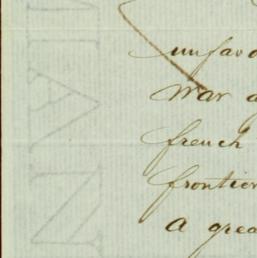 unfavo
war a
french
frontier
a grea